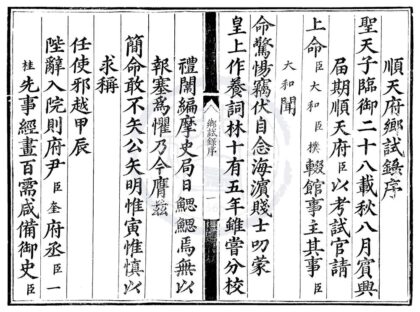 順天府鄉試錄序
聖天子臨御二十八載秋八月賓興
屆期順天府臣以考試官請
上命臣大和臣樸輟館事主其事臣
大和聞
命驚惕竊伏自念海濵賤士叨蒙
皇上作養詞林十有五年雖嘗分校
鄉試錄序
一
禮闈編摩史局日鰓鰓焉無以
報塞爲懼乃今膺茲
簡命敢不矢公矢明惟寅惟慎以
求稱
任使邪越甲辰
陛辭入院則府尹臣奎府丞臣一
桂先事經畫百需咸備御史臣